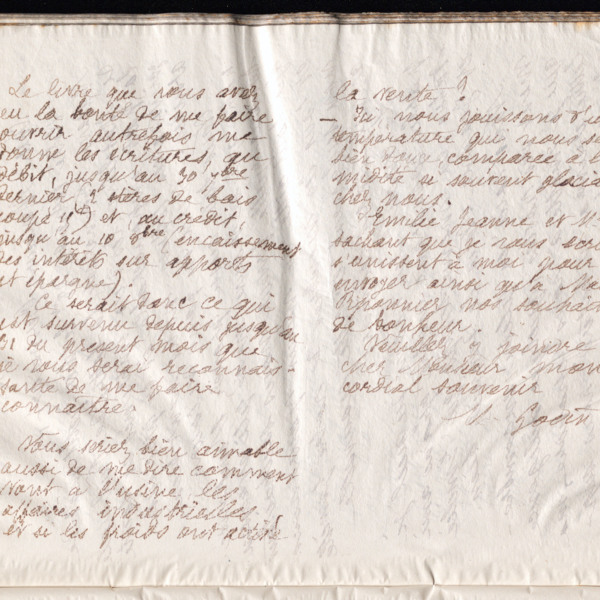 Le livre que vous avez
eu la bonté de me faire
ouvrir autrefois me
donne les écritures, au
débit, jusqu'au 30 9bre
dernier 2 stères de bois
coupé et au crédit,
jusqu'au 10 8bre (encaissement
des intérêts sur apports
et épargne).
Ce serait donc ce qui
est survenu depuis jusqu'au
31 du présent mois que
je vous serai reconnais-
sante de me faire
connaître.
Vous seriez bien aimable
aussi de me dire comment
vont à l'usine les
affaires industrielles
et si les froids ont activé
la vente ?
– Ici nous jouissons d'u
température qui nous se
bien douce comparée à l'
midité si souvent glacia
chez nous.
Emilie Jeanne et
sachant que je vous écri
s'unissent à moi pour
envoyer ainsi qu'à
nos souhait
de bonheur.
Veuillez y joindre
cher Monsieur mon
cordial souvenir